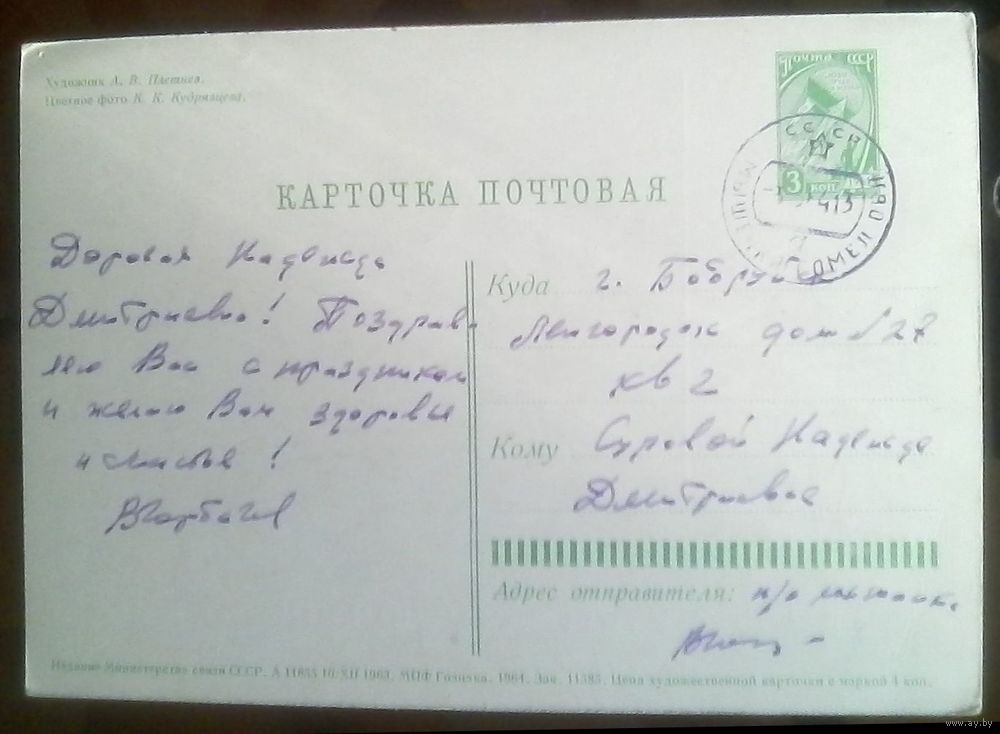 Художник А. В. Плетнев.
Цветное фото К. К. Кудрявцева.
Почта СССР
3 коп
СССР
КАРТОЧКА ПОЧТОВАЯ
Дорогая Надежда
Дмитриевна! Поздрав-
ляю Вас с праздником
и желаю Вам здоровья
и счастья!
Куда г. Бобруйск
дом № 27
кв 2
Кому Суровой Надежде
Дмитриевне
Адрес отправителя: п/о
Издание Министерства связи СССР. А 11655 10/XII 1963. МПФ Гознака. 1964. Зак. 11585. Цена художественной карточки с маркой 4 коп.
www.ay.by